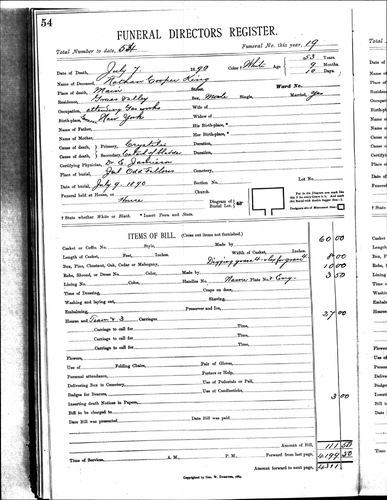 54
FUNERAL DIRECTORS REGISTER.
Total Number to date, 54 Funeral No. this year, 19
Date of Death, July 7 1890 Color † White 53 Years. 9 Months. 10 Days.
Name of Deceased, Nathan Cooper King
Place of death, Main Street, Ward No.
Residence, Grass Valley Sex, Male Single, Married, Yes
Occupation, attending Gas works Wife of
Birth-place, New York Widow of
Name of Father, His Birth-place, *
Name of Mother, Her Birth-place, *
Cause of death, Primary, Cystitis Duration,
Cause of death, Secondary, Duration,
Certifying Physician, Dr E. Jamieson
Place of burial, Odd Fellows Cemetery,
Date of burial, July 9 - 1890 Section No. Lot No.
Funeral held at House, or Church.
House
Diagram of Burial Lot,
† State whether White or Black. * Insert Town and State.
ITEMS OF BILL. (Cross out items not furnished.)
Casket or Coffin No. Style, Made by 60 00
Length of Casket, Feet, Inches. Width of Casket, Inches.
Box, Pine, Chestnut, Oak, Cedar or Mahogany, Digging grave 4 8 00
Robe, Shroud, or Dress No. Color, Made by 10 00
Lining No. Color, Handles No. Name Plate No. & Eng. 3 50
Time of Dressing, Crape on door,
Washing and laying out, Shaving,
Embalming, Preserver and Ice,
Hearse and Team & 3 Carriages Time, 27 00
Carriage to call for Time,
Carriage to call for Time,
Carriage to call for Time,
Carriage to call for Time,
Flowers,
Use of Folding Chairs, Pair of Gloves,
Personal attendance, Posture or Help,
Delivering Box to Cemetery, Use of Pedestals or Pall,
Badges for Bearers, Use of Candlesticks,
Inserting death Notices in Papers, 3 00
Bill to be charged to
Date Bill was presented Date Bill was paid
Amount of Bill, 111 50
Time of Services, A. M., P. M. Forward from last page, 4199 50
Amount forward to next page, 4311
Copyrighted by Geo. W.